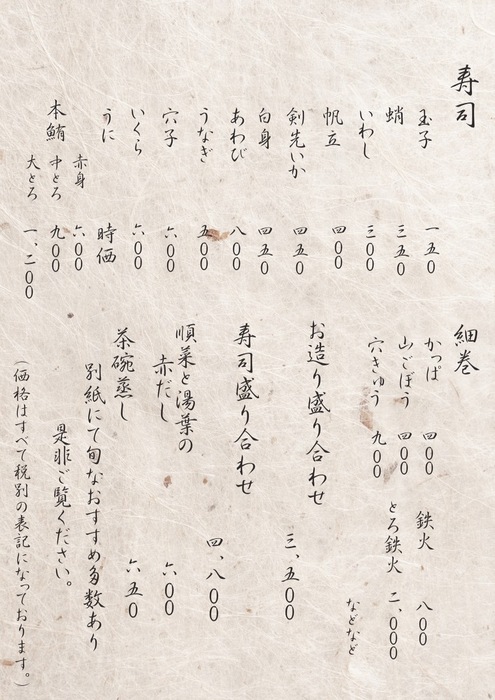 寿司
玉子 一五〇
蛸 三五〇
いわし 三〇〇
帆立 四〇〇
剣先いか 四五〇
白身 四五〇
あわび 八〇〇
うなぎ 五〇〇
穴子 六〇〇
いくら 六〇〇
うに 時価
本鮪 赤身 六〇〇
中とろ 九〇〇
大とろ 一、二〇〇
細巻
かっぱ 四〇〇
山ごぼう 四〇〇
穴きゅう 九〇〇
鉄火 八〇〇
とろ鉄火 二、〇〇〇
などなど
お造り盛り合わせ 三、五〇〇
寿司盛り合わせ 四、八〇〇
順菜と湯葉の
赤だし 六〇〇
茶碗蒸し 六五〇
別紙にて旬なおすすめ多数あり
是非ご覧ください。
（価格はすべて税別の表記になっております。）